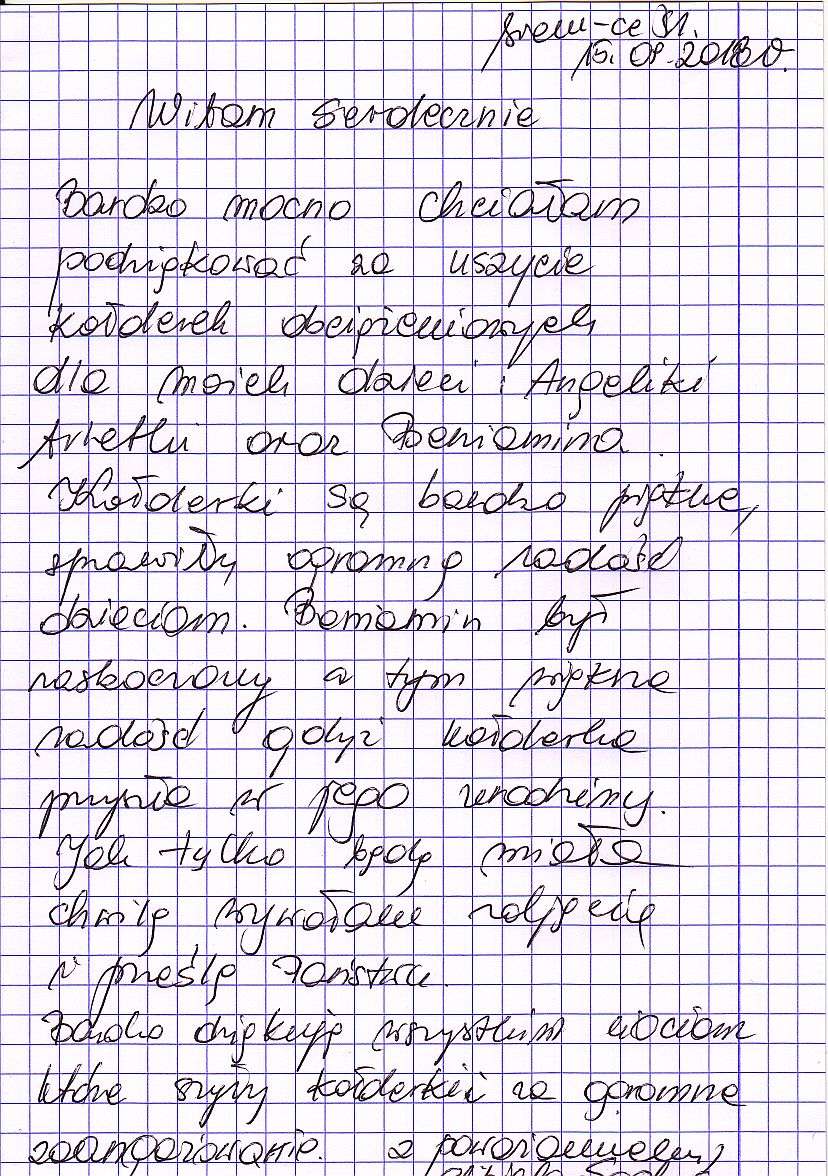 15.09.2018r.
Witam serdecznie
Bardzo mocno chciałam
podziękować za uszycie
kołderek
dla moich dzieci: Angeliki
Arletki oraz Beniamina.
Kołderki są bardzo piękne,
sprawiły ogromną radość
dzieciom. Beniamin był
zaskoczony a tym piękna
radość gdyż kołderka
przyszła w jego urodziny.
Jak tylko będę miała
chwilę wywołam zdjęcie
i prześlę Państwu.
Bardzo dziękuję wszystkim ciociom
które szyły kołderki za ogromne
zaangażowanie. z poważaniem